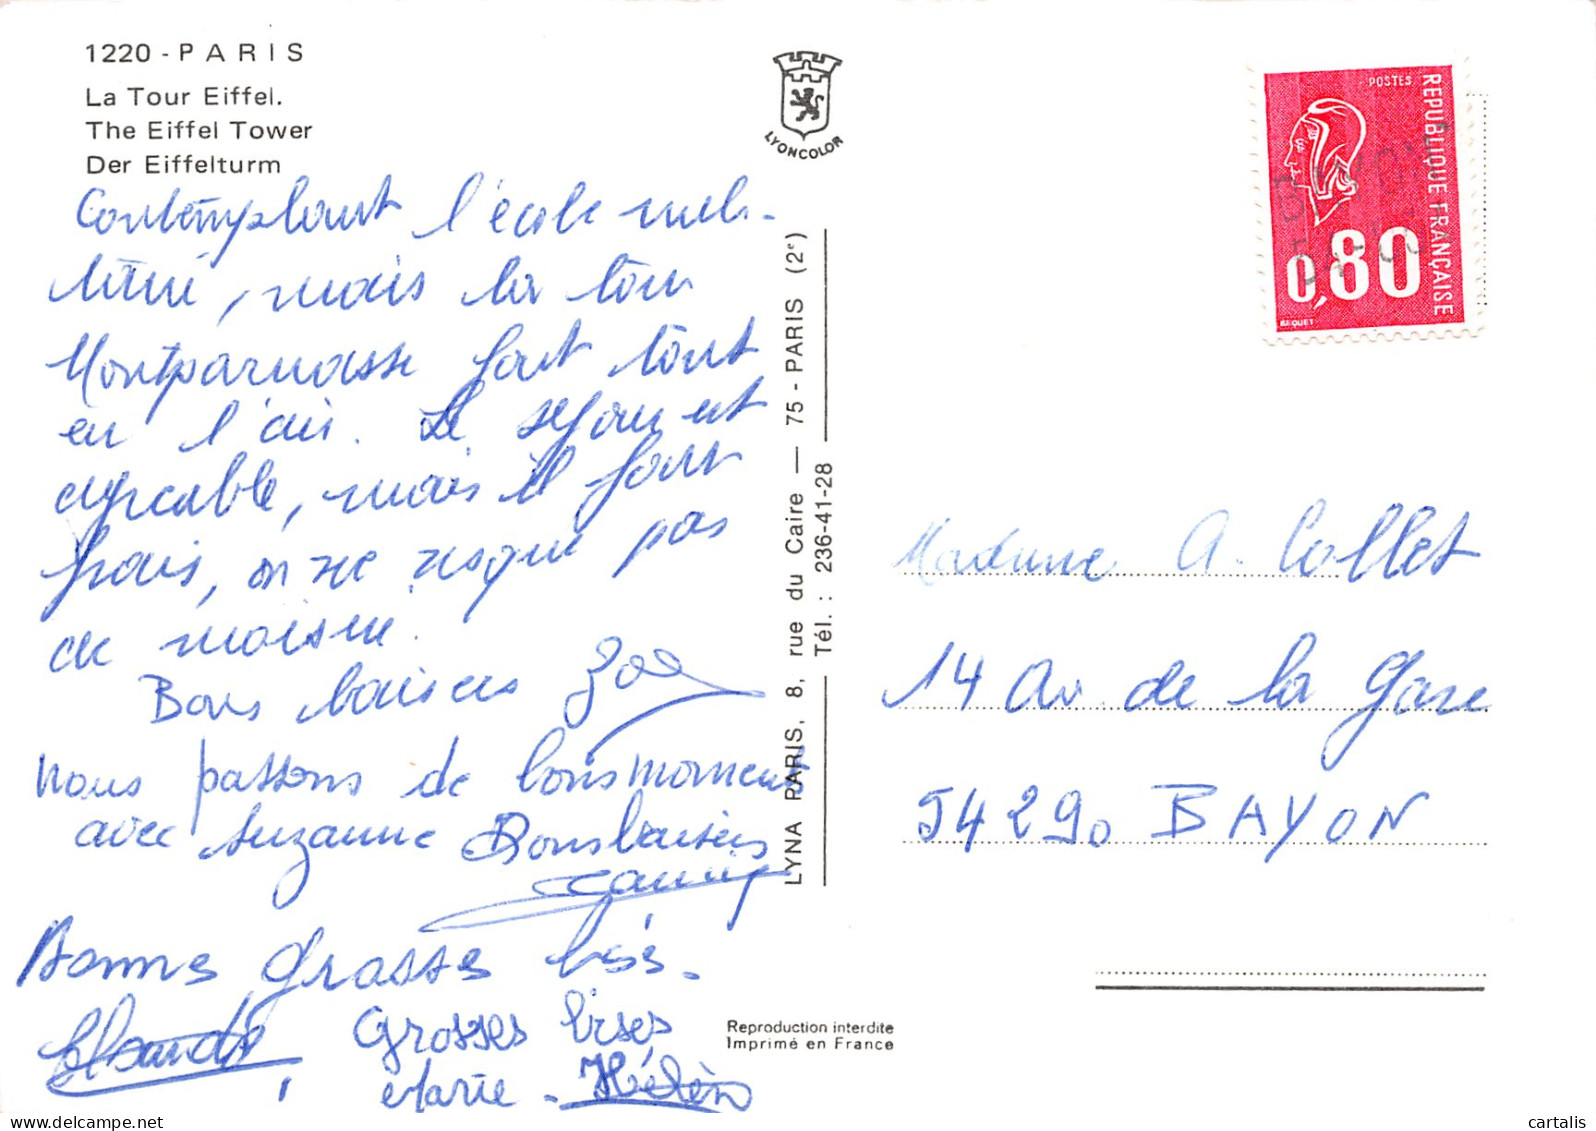 1220 - PARIS
La Tour Eiffel.
The Eiffel Tower
Der Eiffelturm
LYONCOLOR
POSTES
REPUBLIQUE FRANÇAISE
0,80
BEQUET
Contemplant l'école mili-
taire, mais la tour
Montparnasse fout tout
en l'air. Le séjour est
agréable, mais il fait
frais, on ne risque pas
de moisir.
Bons baisers Zoé
Nous passons de bons moments
avec Suzanne Bons baisers
Bonnes grosses bises.
Claude
Grosses bises
Marie - Hélène
LYNA PARIS, 8, rue du Caire — 75 - PARIS (2e)
Tél. : 236-41-28
Madame A. Collet
14 Av. de la Gare
54290 BAYON
Reproduction interdite
Imprimé en France
cartalis